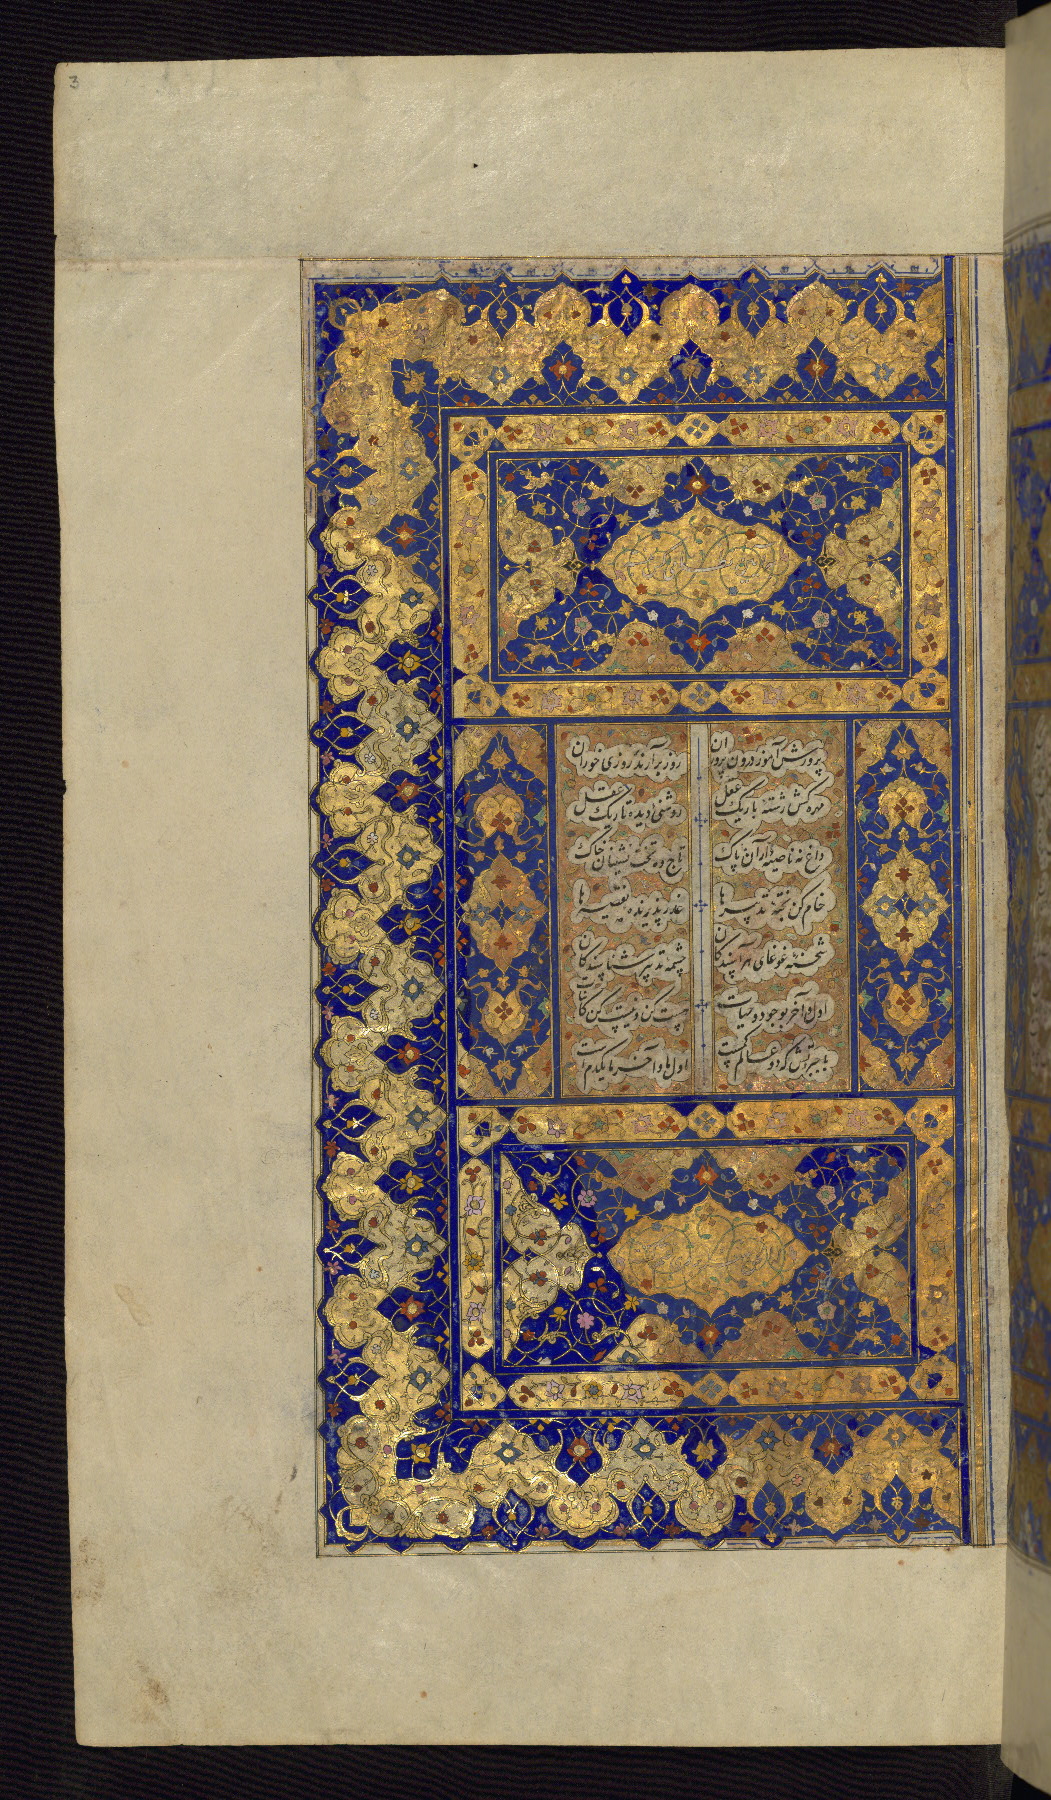 3
پرورش آموز درون پروران روز برآرنده روزی خوران
مهره کش رشته باریک عقل روشنی دیده تاریک عقل
داغ نه ناصیه داران پاک تاج ده تخت نشینان خاک
خام کن پخته تدبیرها عذر پذیرنده تقصیرها
شحنه غوغای هراسندگان چشمه تدبیر شناسندگان
اول و آخر بوجود و حیات هست کن و نیست کن کاینات
با جبروتش که دو عالم کمست اول ما و آخر ما یکدم است